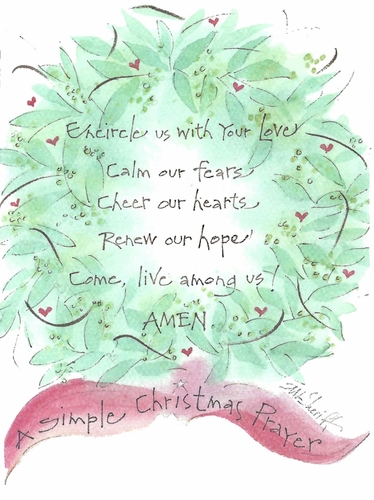 Encircle us with Your Love
Calm our fears
Cheer our hearts
Renew our hope
Come, live among us!
AMEN
A Simple Christmas Prayer